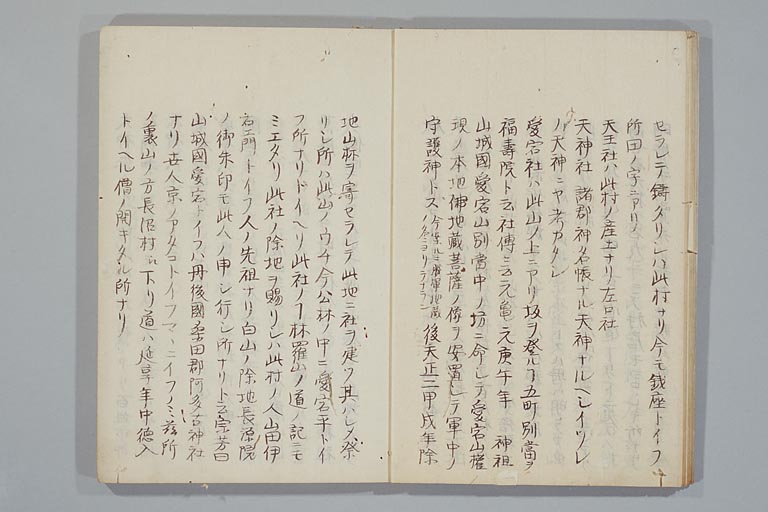 セラレテ鑄タリシハ此村ナリ今モ錢座トイフ
所田ノ字ニアリ
天王社ハ此村ノ産土ナリ左口社
天神社 諸郡神名帳ナル天神ナルヘシイツレ
ノ天神ニヤ考カタシ
愛宕社ハ此山ノ上ニアリ坂ヲ登ル丁五町別當ヲ
福壽院ト云社傳ニ云元亀元庚午年 神祖
山城國愛宕山別當中ノ坊ニ命シテ愛宕山權
現ノ本地佛地蔵菩薩ノ像ヲ安置シテ軍中ノ
守護神トス 後天正二甲戌年除
地山林ヲ寄セラレテ此地ニ社ヲ建ツ其ハシメ祭
リシ所ハ此山ノウチ今公林ノ中ニ愛宕平トイ
フ所ナリトイヘリ此社ノ丁林羅山ノ道ノ記ニモ
ミエタリ此社ノ除地ヲ賜リシハ此村ノ人山田伊
右エ門トイフ人ノ先祖ナリ白山ノ除地長源院
ノ御朱印モ此人ノ申シ行シ所ナリト云宗芳曰
山城國愛宕トイフハ丹後國桑田郡阿多古神社
ナリ世人京ノアタコトイフマヽニイフノミ茲所
ノ裏山ノ方長沼村ニ下リ道ハ延享年中徳入
トイヘル僧ノ開キタル所ナリ